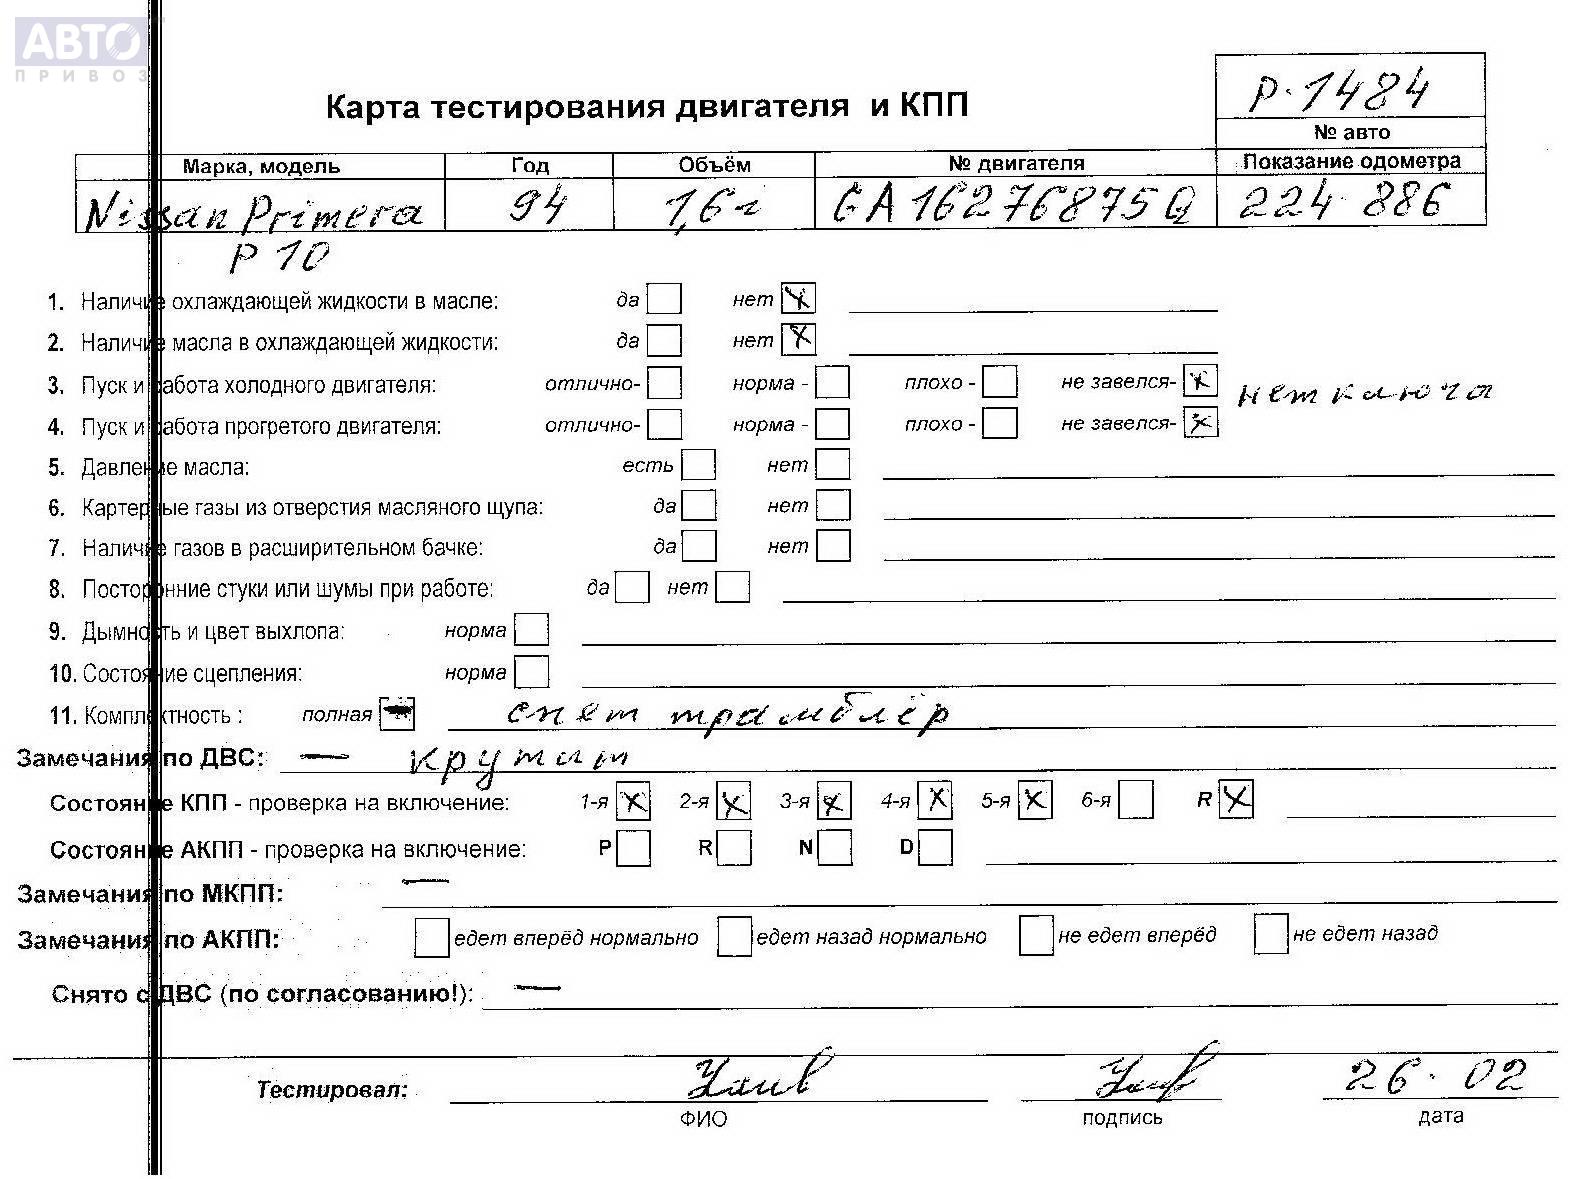 АВТО
ПРИВОЗ
Р-1484
Карта тестирования двигателя и КПП
№ авто
Марка, модель Год Объём № двигателя Показание одометра
Nissan Primera 94 1,6i GA16276875Q 224 886
P 10
1. Наличие охлаждающей жидкости в масле: да нет
2. Наличие масла в охлаждающей жидкости: да нет
3. Пуск и работа холодного двигателя: отлично- норма - плохо - не завелся- нет ключа
4. Пуск и работа прогретого двигателя: отлично- норма - плохо - не завелся-
5. Давление масла: есть нет
6. Картерные газы из отверстия масляного щупа: да нет
7. Наличие газов в расширительном бачке: да нет
8. Посторонние стуки или шумы при работе: да нет
9. Дымность и цвет выхлопа: норма
10. Состояние сцепления: норма
11. Комплектность : полная снет трамблёр
Замечания по ДВС: — крутит
Состояние КПП - проверка на включение: 1-я 2-я 3-я 4-я 5-я 6-я R
Состояние АКПП - проверка на включение: P R N D
Замечания по МКПП: —
Замечания по АКПП: едет вперёд нормально едет назад нормально не едет вперёд не едет назад
Снято с ДВС (по согласованию!): —
Тестировал: 26.02
ФИО подпись дата